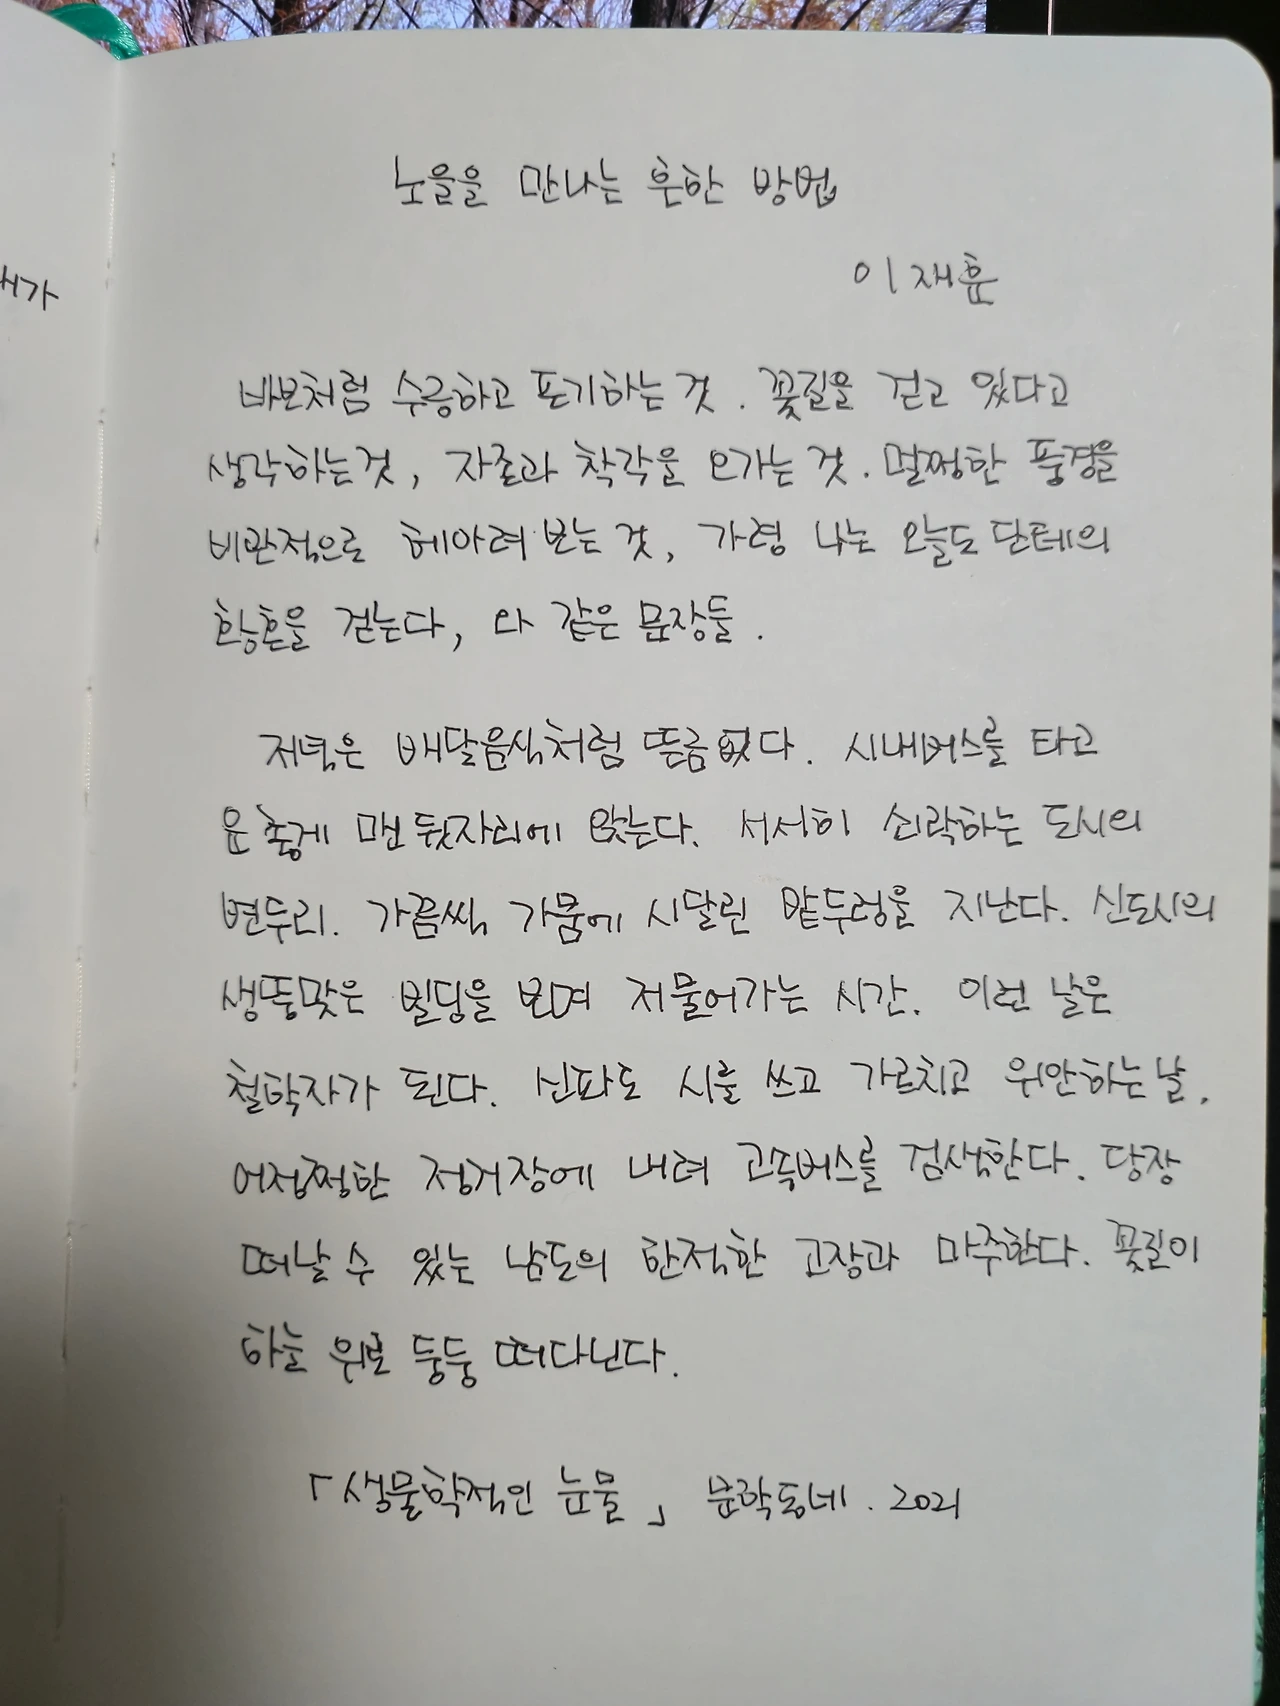 노을을 만나는 흔한 방법
이재훈
내가
바보처럼 수긍하고 포기하는 것. 꽃길을 걷고 있다고
생각하는 것, 자존과 착각을 오가는 것. 멀쩡한 풍경을
비관적으로 헤아려 보는 것, 가령 나는 오늘도 단테의
황혼을 걷는다, 와 같은 문장들.
저녁은 배달음식처럼 뜬금없다. 시내버스를 타고
운좋게 맨 뒷자리에 앉는다. 서서히 쇠락하는 도시의
변두리. 가끔씩 가뭄에 시달린 밭두렁을 지난다. 신도시의
생뚱맞은 빌딩을 보며 저물어가는 시간. 이런 날은
철학자가 된다. 신파도 시를 쓰고 가르치고 위안하는 날.
어정쩡한 정거장에 내려 고속버스를 검색한다. 당장
떠날 수 있는 남도의 한적한 고장과 마주한다. 꽃길이
하늘 위로 둥둥 떠다닌다.
「생물학적인 눈물」 문학동네. 2021